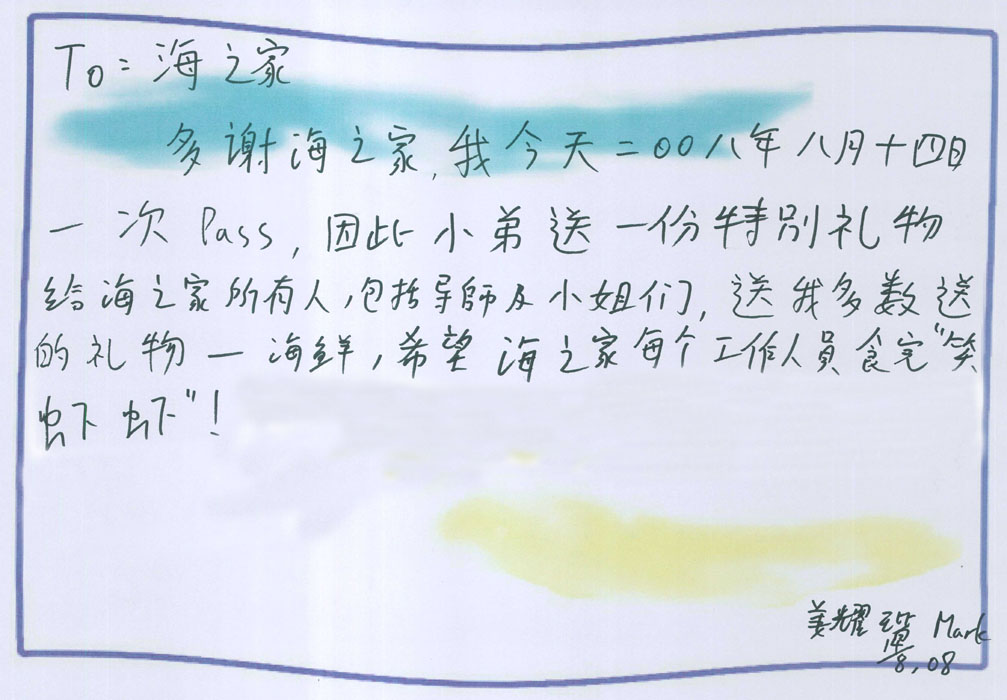 To: 海之家
多谢海之家,我今天二00八年八月十四日
一次Pass,因此小弟送一份特别礼物
给海之家所有人,包括导師及小姐们,送我多数送
的礼物一海鲜,希望海之家每个工作人員食完"笑
虾虾"!
姜耀 Mark
8,08